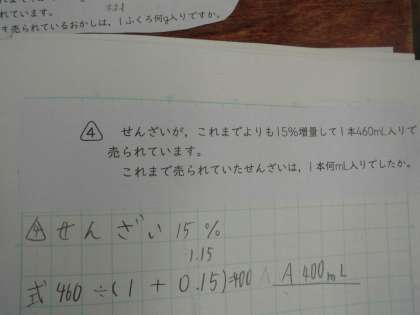 れています。
す売られているおかしは，1ふくろ何g入りですか。
4 せんざいが，これまでよりも15%増量して1本460mL入りで
売られています。
これまで売られていたせんざいは，1本何mL入りでしたか。
4 せんざい 15%
1.15
式 460÷(1+0.15)=400 A 400mL